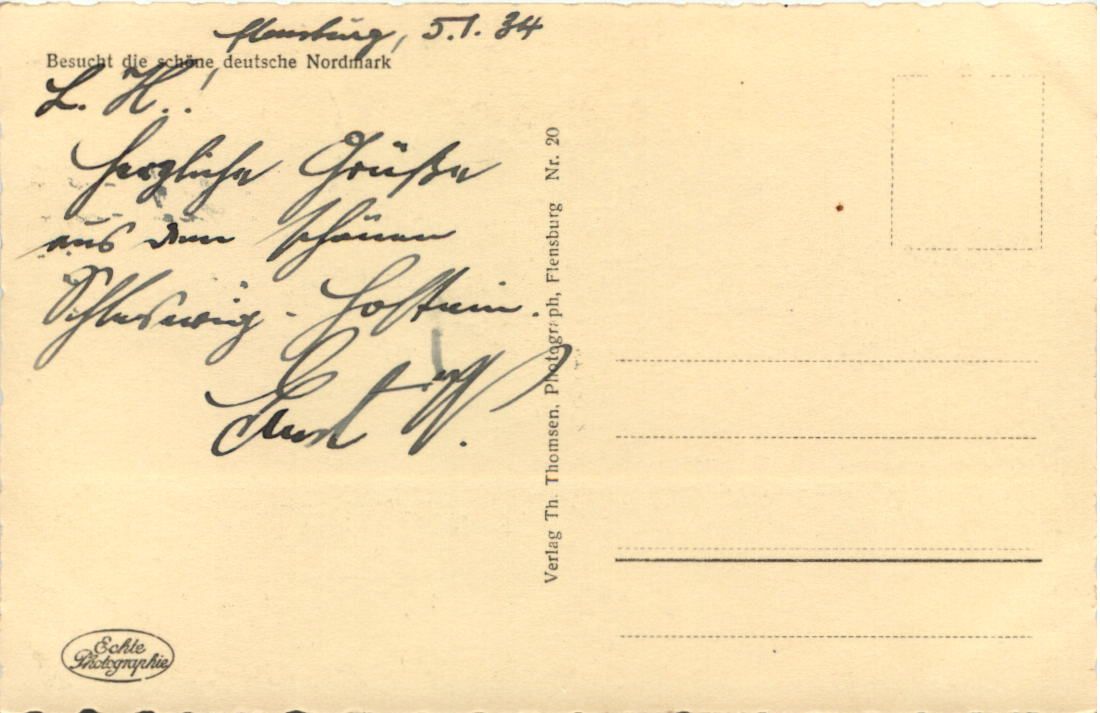 Flensburg, 5.1.34
Besucht die schöne deutsche Nordmark
L. H.!
Herzliche Grüße
aus dem schönen
Schleswig-Holstein.
Verlag Th. Thomsen, Photograph, Flensburg Nr. 20
Echte
Photographie